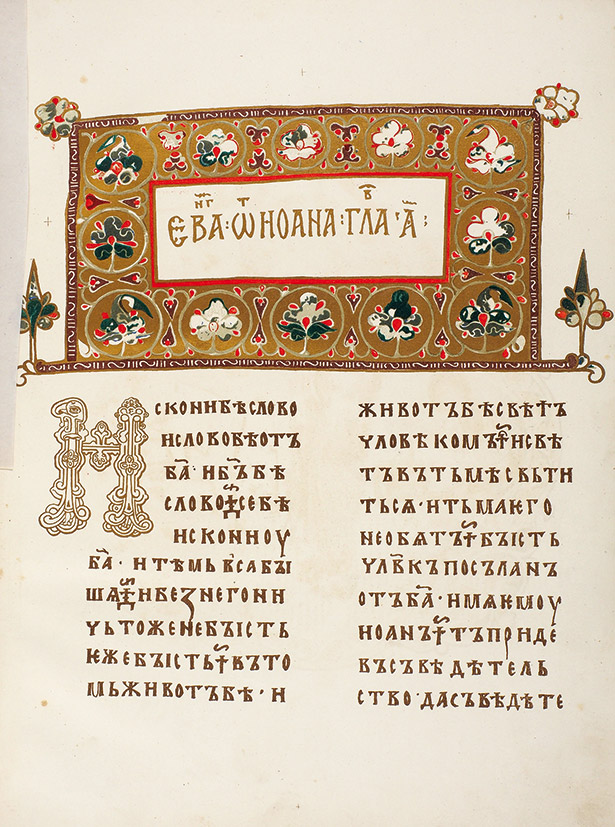 ЄВА҃Н҃Г : Ѿ ИОАНА : ГЛА҃В · А҃ :
ИСКОНИБѢСЛОВО
ИСЛОВОБѢОТЪ
Б҃А · ИБ҃ЪБѢ
СЛОВО СЕБѢ
ИСКОНИОУ
Б҃А · ИТѢМЬВСАБЫ
ШѦ ИБЕЗНЕГОНИ
ЧЬТОЖЕНЕБЫСТЬ
ѤЖЕБЫСТЬ ВЪТО
МЬЖИВОТЪБѢ · И
ЖИВОТЪБѢСВѢТЪ
ЧЛОВѢКОМЪ ИСВѢ
ТЪВЪТЬМѢСВЬТИ
ТЬСѦ · ИТЬМАѤГО
НЕОБѦТЪ БЫСТЬ
ЧЛ҃ВКЪПОСЪЛАНЪ
ОТЪБ҃А · ИМѦѤМОУ
ИОАНЪ ТЪПРИДЕ
ВЪСЪВѢДѢТЕЛЬ
СТВО · ДАСЪВѢДѢТЕ